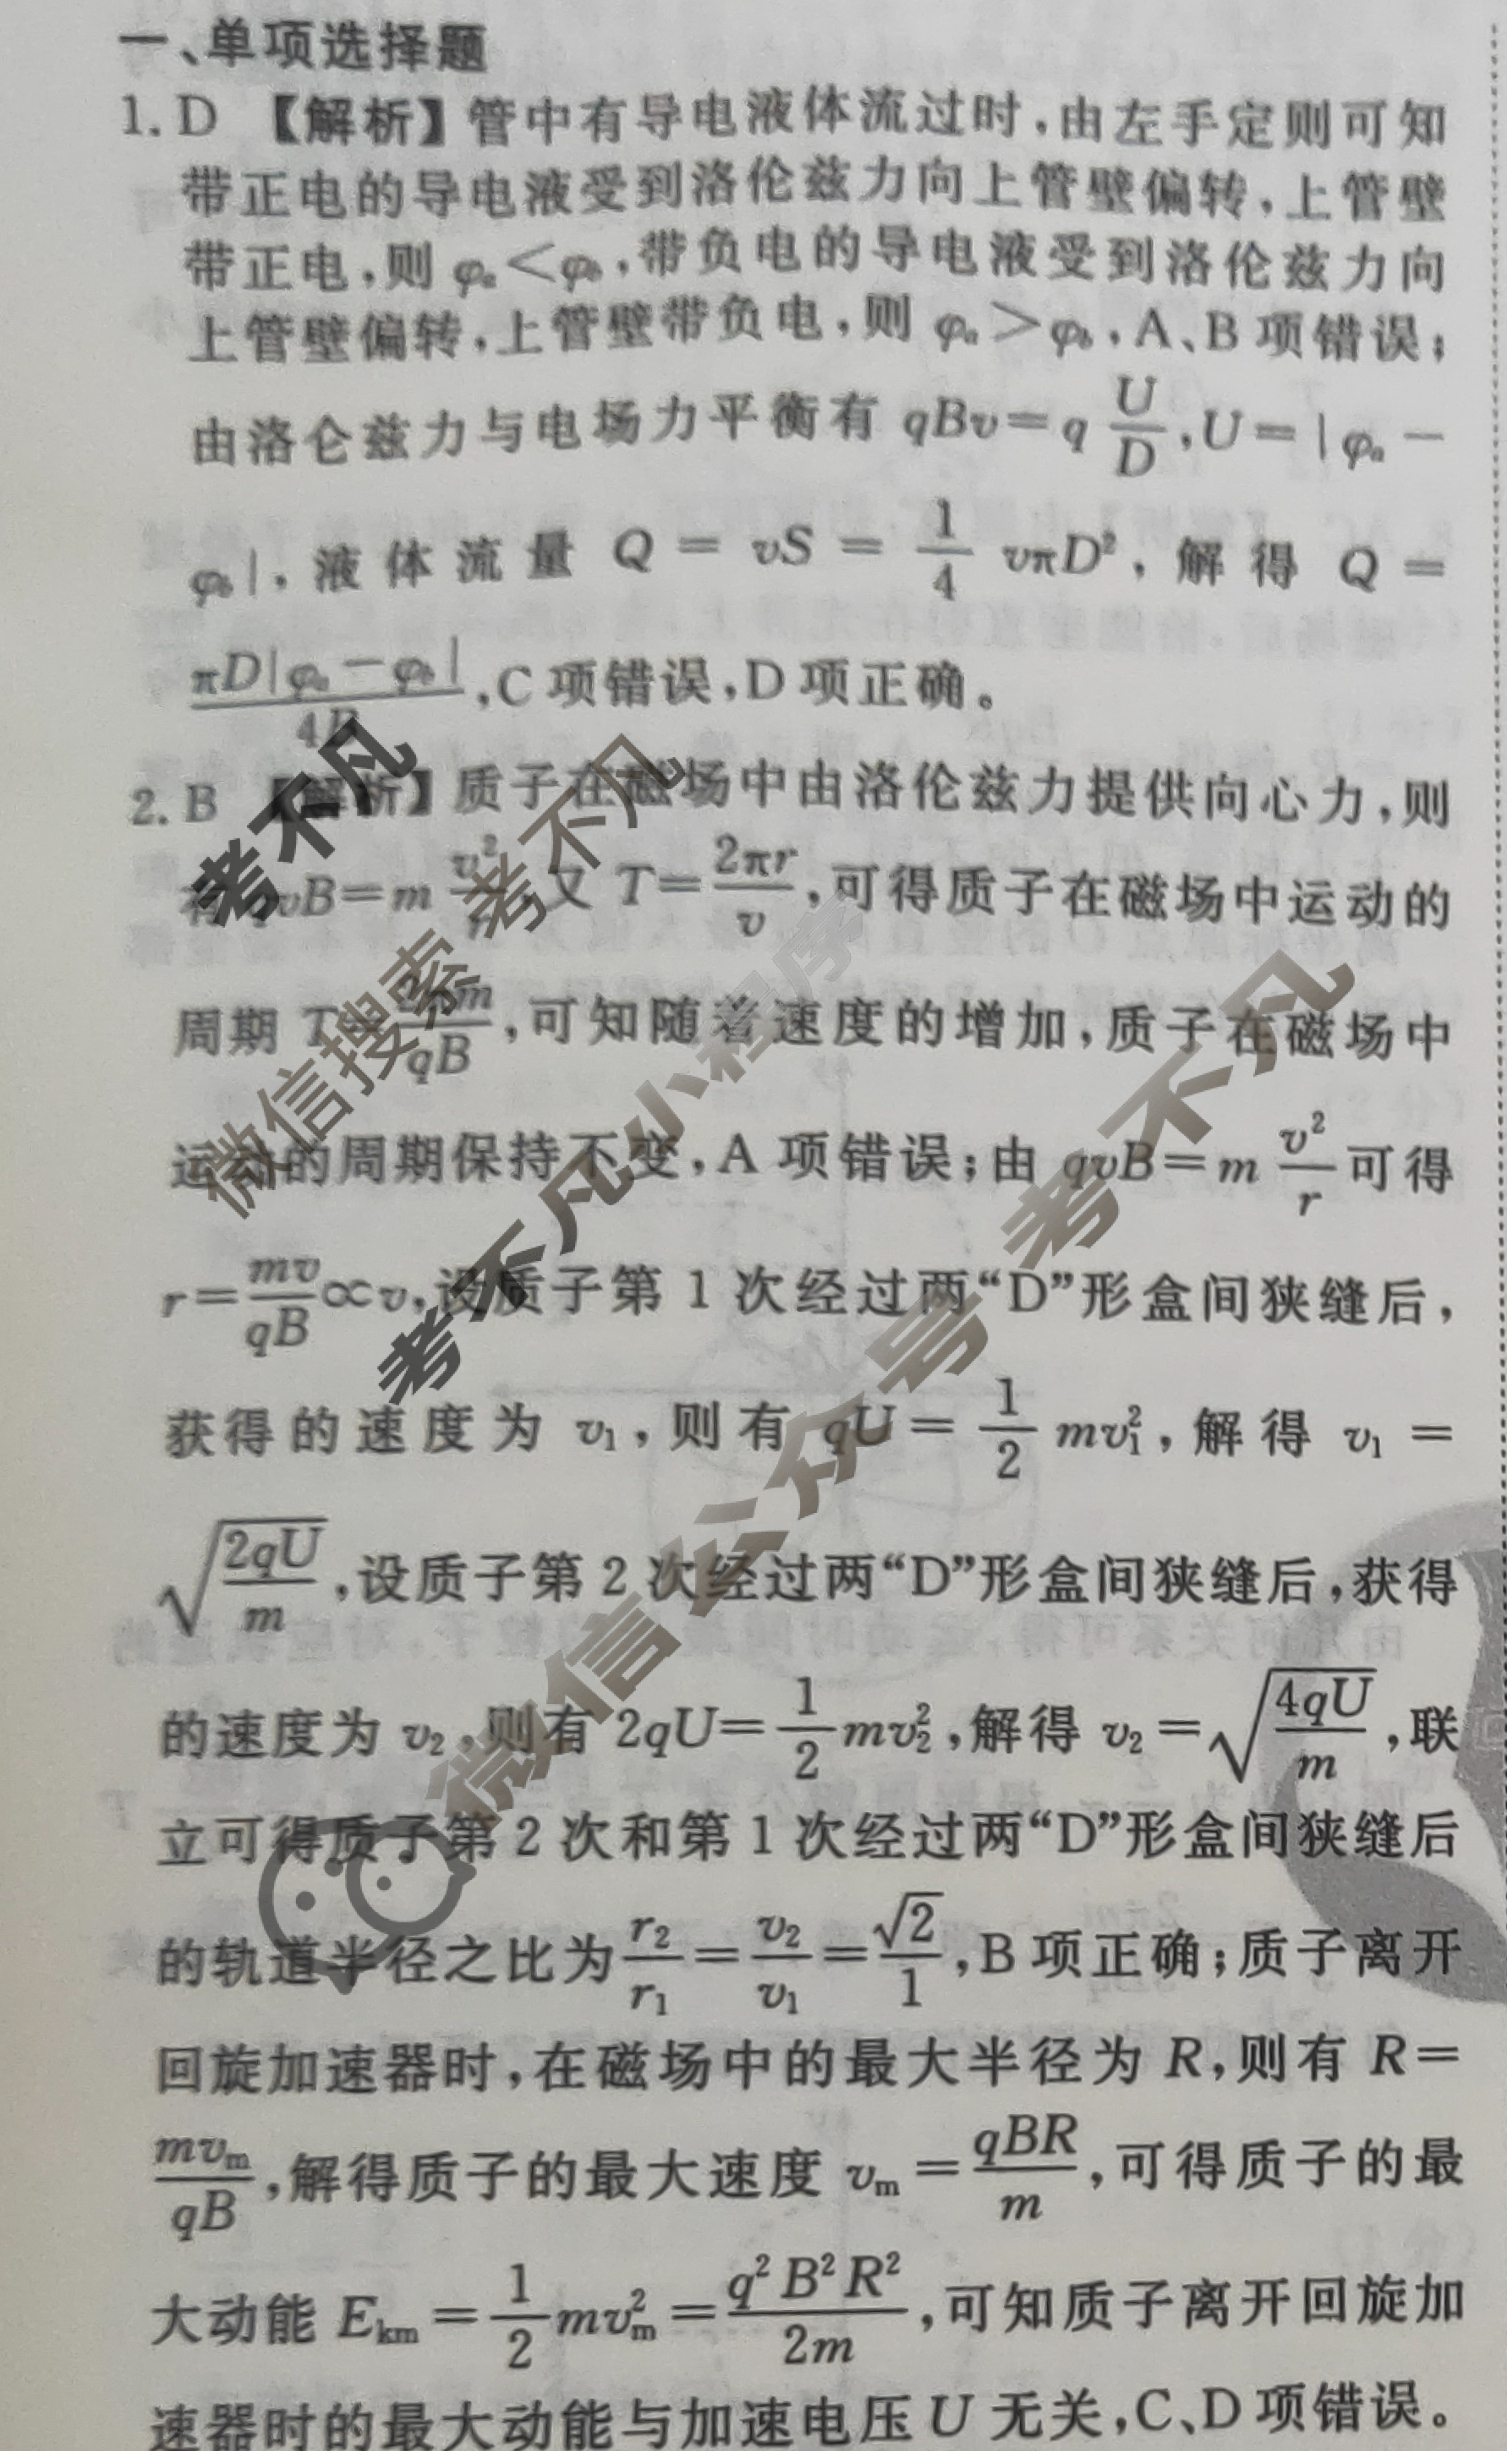 一、单项选择题
1. D 【解析】管中有导电液体流过时,由左手定则可知
带正电的导电液受到洛伦兹力向上管壁偏转,上管壁
带正电,则 φₐ<φ_b,带负电的导电液受到洛伦兹力向
上管壁偏转,上管壁带负电,则 φₐ>φ_b,A、B 项错误;
由洛仑兹力与电场力平衡有 qBv=q U/D,U=|φₐ-
φ_b|,液体流量 Q=vS=1/4 vπD²,解得 Q=
πD|φₐ-φ_b|/4B,C 项错误,D 项正确。
2. B 【解析】质子在磁场中由洛伦兹力提供向心力,则
有 qvB=m v²/r,又 T=2πr/v,可得质子在磁场中运动的
周期 T=2πm/qB,可知随着速度的增加,质子在磁场中
运动的周期保持不变,A 项错误;由 qvB=m v²/r 可得
r=mv/qB∝v,设质子第 1 次经过两“D”形盒间狭缝后,
获得的速度为 v₁,则有 qU=1/2 mv₁²,解得 v₁=
√(2qU/m),设质子第 2 次经过两“D”形盒间狭缝后,获得
的速度为 v₂,则有 2qU=1/2 mv₂²,解得 v₂=√(4qU/m),联
立可得质子第 2 次和第 1 次经过两“D”形盒间狭缝后
的轨道半径之比为 r₂/r₁=v₂/v₁=√2/1,B 项正确;质子离开
回旋加速器时,在磁场中的最大半径为 R,则有 R=
mvₘ/qB,解得质子的最大速度 vₘ=qBR/m,可得质子的最
大动能 Eₖₘ=1/2 mvₘ²=q²B²R²/2m,可知质子离开回旋加
速器时的最大动能与加速电压 U 无关,C、D 项错误。
考不凡
微信搜索 考不凡
考不凡小程序
微信公众号 考不凡